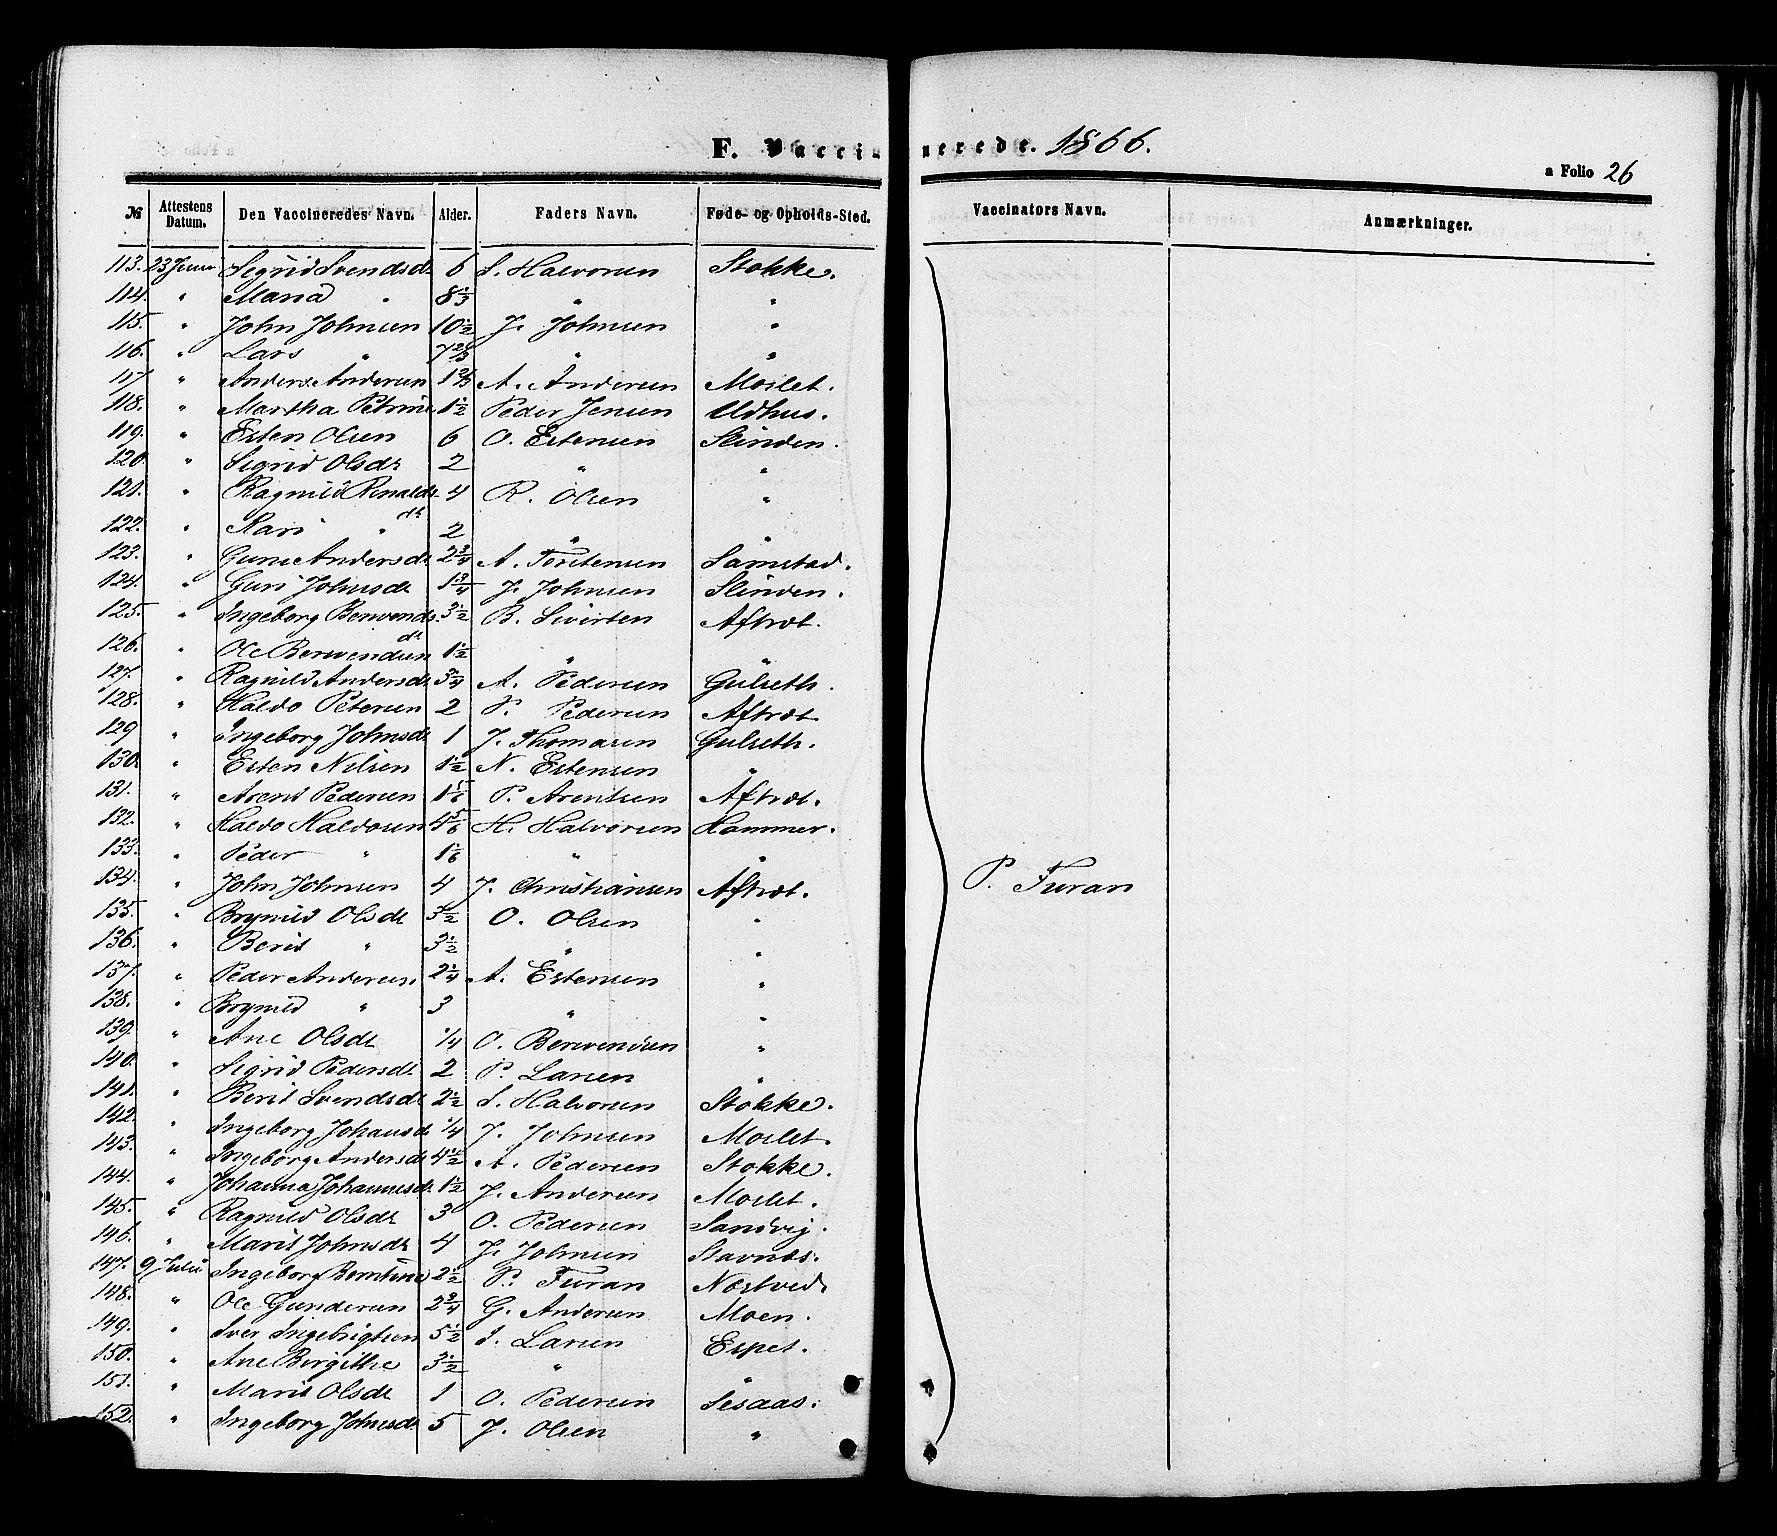 F. Vaccinerede. 1866.
a Folio 26
№ Attestens Datum. Den Vaccineredes Navn. Alder. Faders Navn. Føde- og Opholds-Sted. Vaccinators Navn. Anmærkninger.
113. 23 Juni Sigrid Svendsdr 6 S. Halvorsen Stokke.
114. " Maria " 8 1/3 " "
115. " John Johnsen 10 1/2 J. Johnsen "
116. " Lars " 7 2/3 " "
117. " Anders Andersen 1 2/3 A. Andersen Moslet.
118. " Martha Petrine 1 1/2 Peder Jensen Udhus.
119. " Esten Olsen 6 O. Estensen Slinden.
120. " Sigrid Olsdr 2 " "
121. " Ragnild Renaldsdr 4 R. Olsen "
122. " Kari " 2 " "
123. " Gurie Andersdr 2 3/4 A. Torstensen Samstad.
124. " Guri Johnsdr 1 3/4 J. Johnsen Slinden.
125. " Ingeborg Berwendsdr 3 1/2 B. Sivirtsen Aftret.
126. " Ole Berwendsen 1 1/2 " "
127. " Ragnild Andersdr 3 3/4 A. Pedersen Gulseth.
128. " Haldo Petersen 2 P. Pedersen Aftret
129 " Ingeborg Johnsdr 1 J. Thomasen Gulseth.
130. " Esten Nilsen 1 1/2 N. Estensen "
131. " Arent Pedersen 1 5/6 P. Arentsen Aftret.
132. " Haldo Haldosen 4 5/6 H. Halvorsen Hammer.
133. " Peder " 1 1/6 " "
134. " John Johnsen 4 J. Christiansen Aftret. P. Furan
135. " Brynild Olsdr 3 1/2 O. Olsen "
136. " Berit " 3 1/2 " "
137. " Peder Andersen 2 1/4 A. Estensen "
138. " Brynild " 3 " "
139. " Ane Olsdr 1/4 O. Berwendsen "
140. " Sigrid Pedersdr 2 P. Larsen "
141. " Berit Svendsdr 2 1/2 S. Halvorsen Stokke.
142. " Ingeborg Johansd 1/4 J. Johnsen Moslet.
143. " Ingeborg Andersdr 4 1/2 A. Pedersen Stokke.
144. " Johanna Johannesd. 1 1/2 J. Andersen Moslet.
145. " Ragnild Olsdr 3 O. Pedersen Sandvig.
146. " Marit Johnsdr 4 J. Johnsen Stavnæs.
147. 9 Juli Ingeborg Berntine 2 1/2 P. Furan Næstved.
148. " Ole Gundersen 2 3/4 G. Andersen Moen.
149. " Iver Ingebrigtsen 5 1/2 I. Larsen Espet.
150. " Ane Birgithe 3 1/2 " "
151. " Marit Olsdr 1 O. Pedersen Sesaas.
152. " Ingeborg Johnsdr 5 J. Olsen "